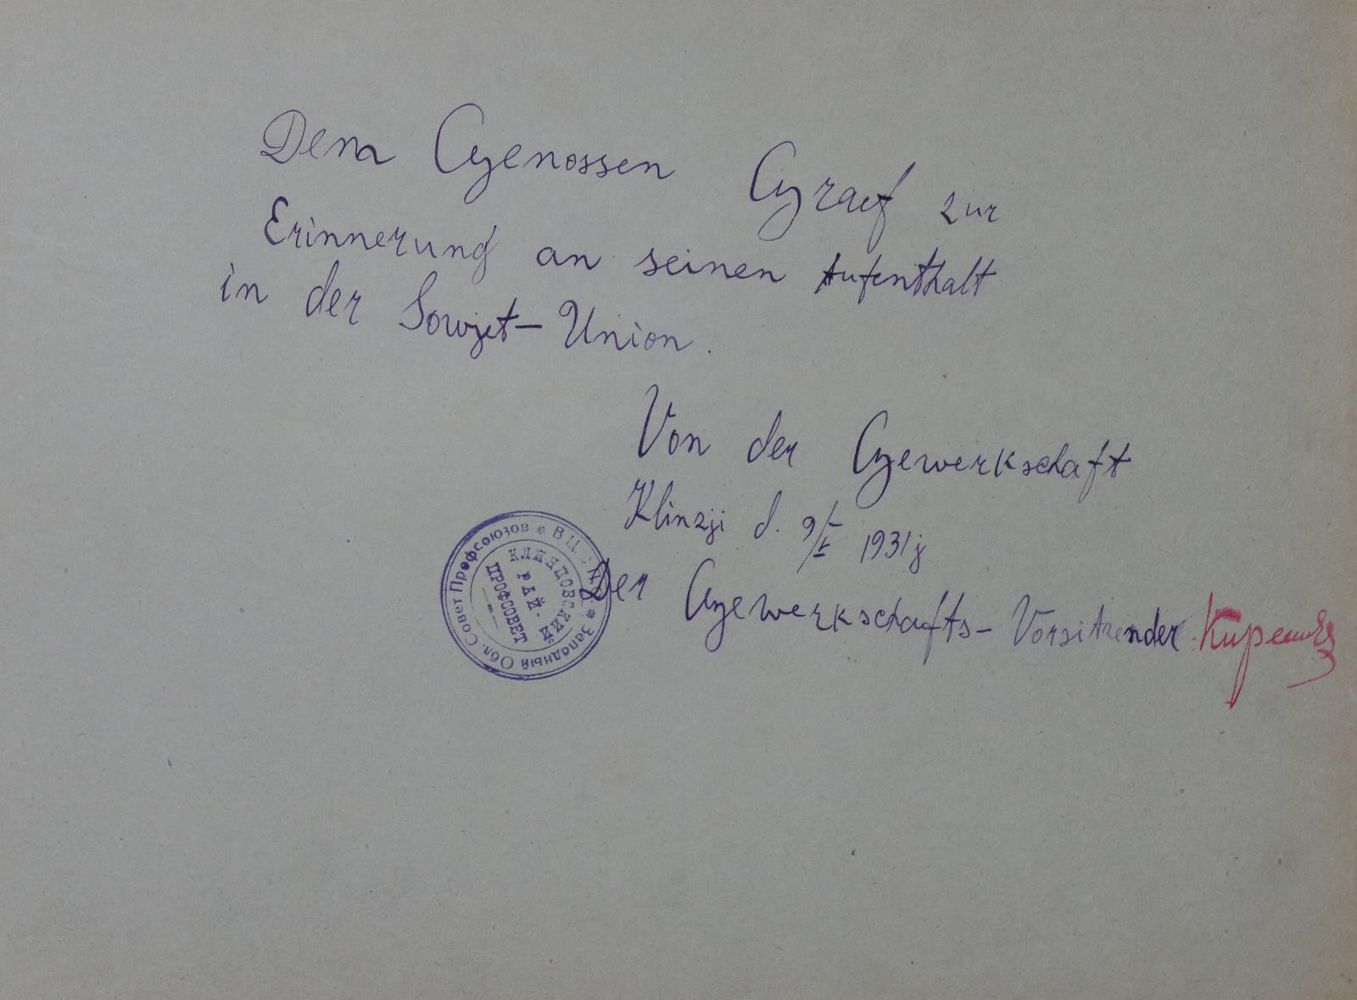 Dem Genossen Graef zur
Erinnerung an seinen Aufenthalt
in der Sowjet-Union.
Von der Gewerkschaft
Klinzji d. 9/V 1931 j
Der Gewerkschafts-Vorsitzender
В.Ц.С.П.С. * Западный Обл. Совет Профсоюзов *
КЛИНЦОВСКИЙ
РАЙ.
ПРОФСОВЕТ